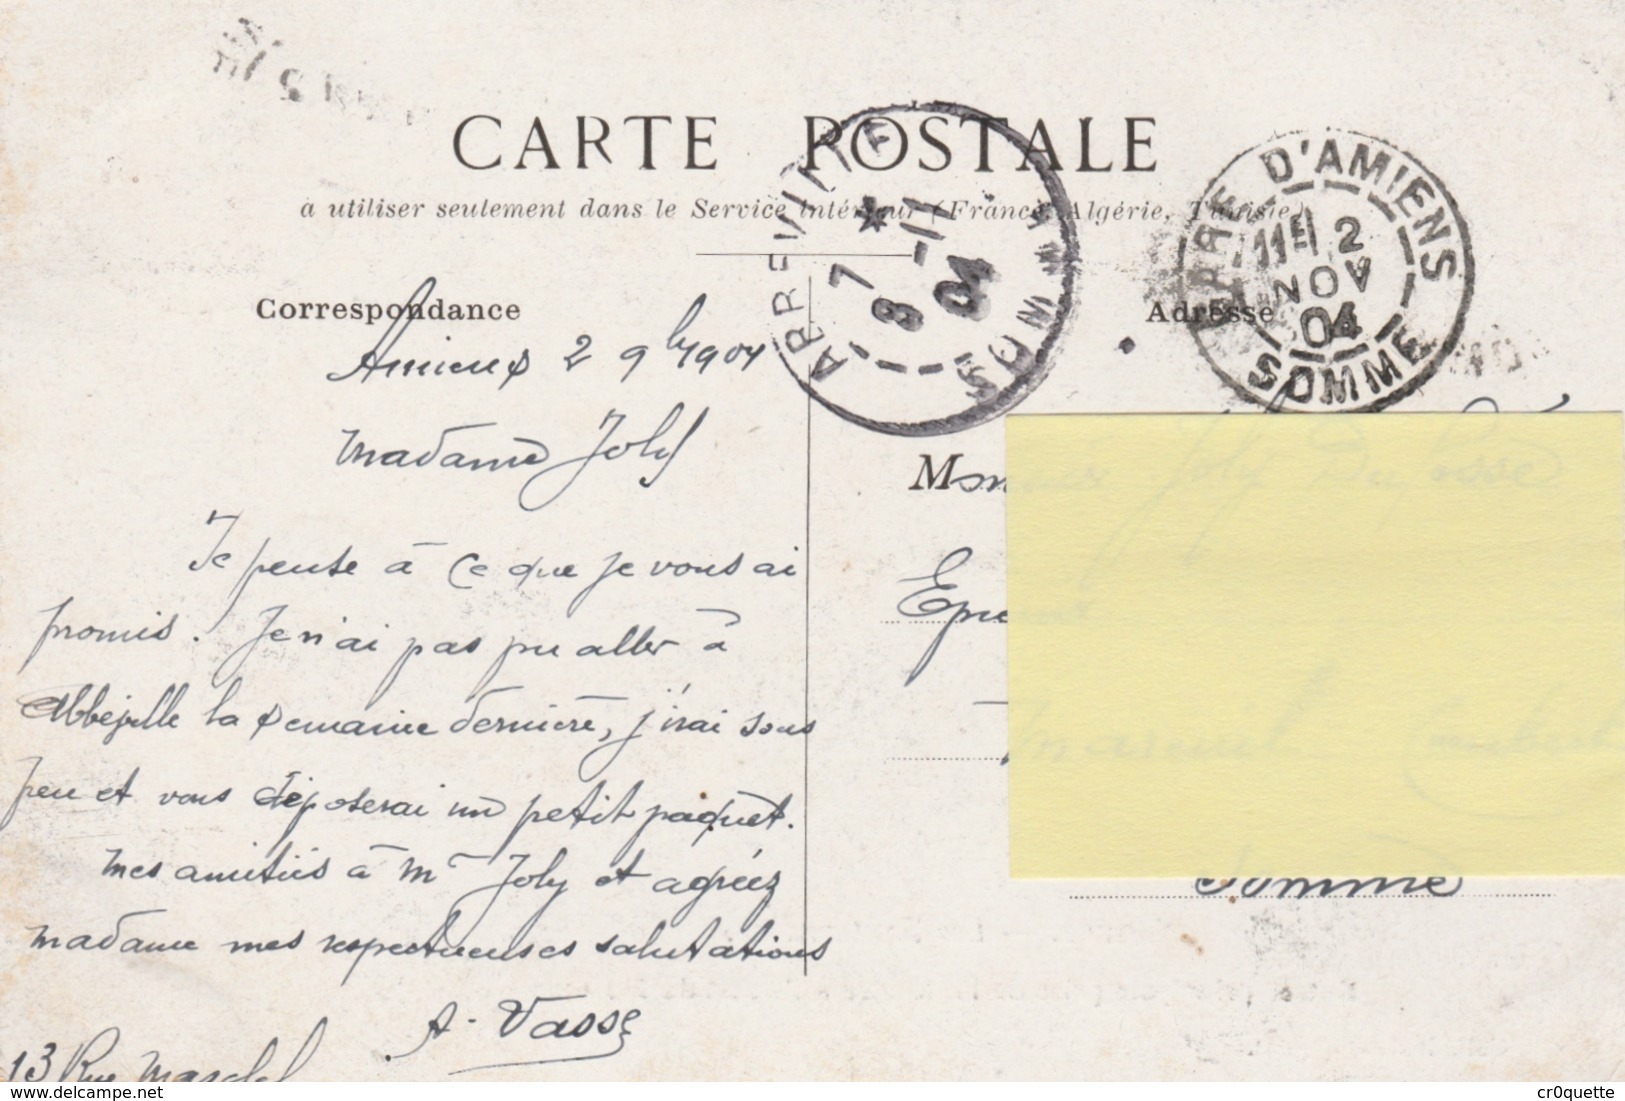 CARTE POSTALE
à utiliser seulement dans le Service intérieur (France, Algérie, Tunisie)
Correspondance
Adresse
GARE D'AMIENS
11E 2
NOV
04
SOMME
7
8 -11
04
SOMME
Amiens 2 9b 1904
Madame Joly
Je pense à ce que je vous ai
promis. Je n'ai pas pu aller à
Abbeville la semaine dernière, j'irai sous
peu et vous déposerai un petit paquet.
Mes amitiés à Mr Joly et agréez
madame mes respectueuses salutations
A. Vasse
13 Rue
Somme
delcampe.net
cr0quette